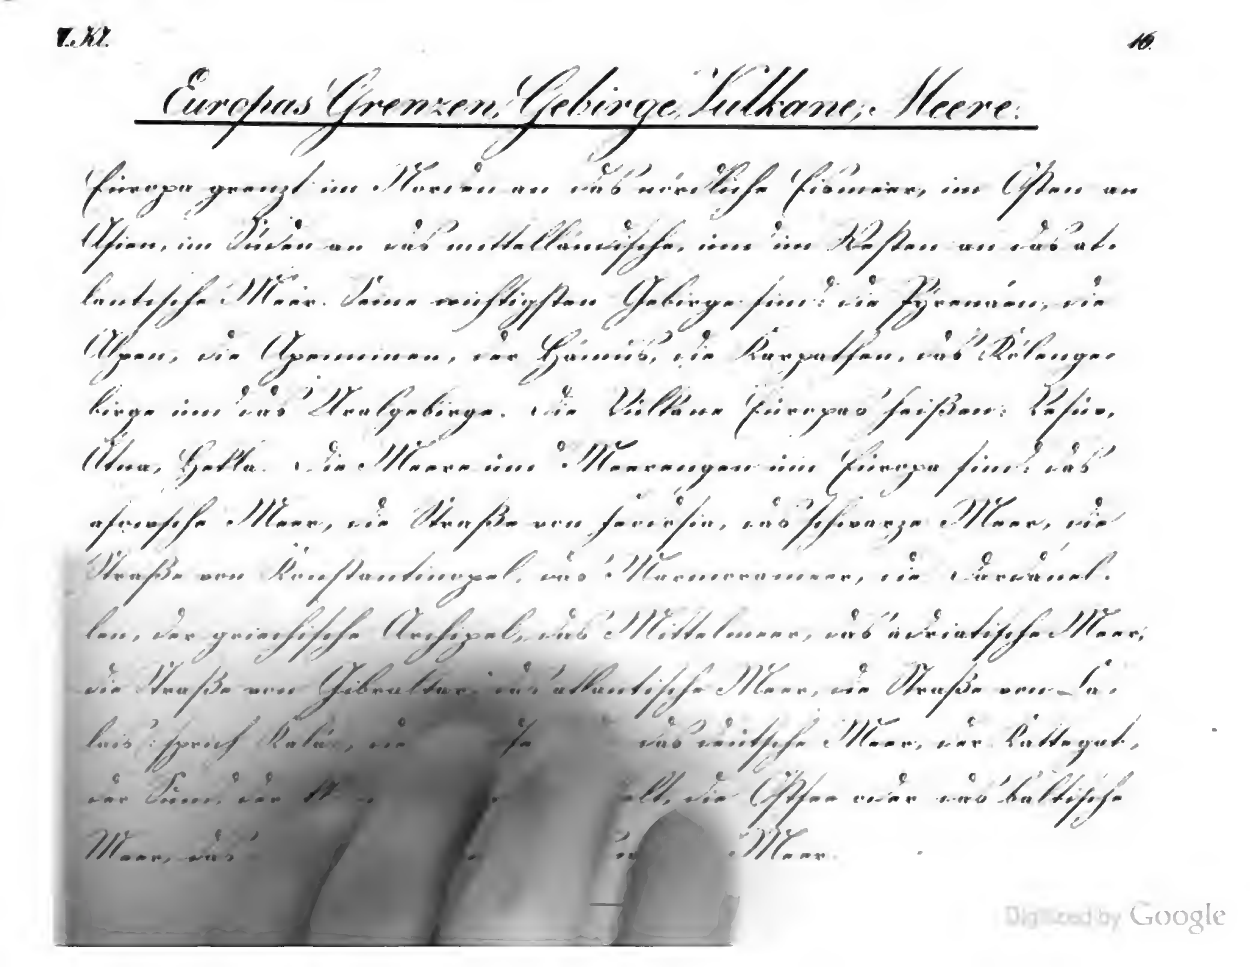 V. Kl. 16.
Europas Grenzen, Gebirge, Vulkane, Meere.
Europa grenzt im Norden an das nördliche Eismeer, im Osten an
Asien, im Süden an das mittelländische, und im Westen an das at-
lantische Meer. Seine wichtigsten Gebirge sind: die Pyrenäen, die
Alpen, die Apenninen, der Hämus, die Karpathen, das Kölenge-
birge und das Uralgebirge. Die Vulkane Europas heißen: Vesuv,
Ätna, Hekla. Die Meere und Meerengen um Europa sind: das
asowsche Meer, die Straße von Feodosia, das schwarze Meer, die
Straße von Konstantinopel, das Marmorameer, die Dardanel-
len, der griechische Archipel, das Mittelmeer, das adriatische Meer,
die Straße von Gibraltar, das atlantische Meer, die Straße von Ca-
lais (sprich Kalä), die das deutsche Meer, der Kattegat,
der Sund, der die Ostsee oder das baltische
Meer, das Meer.
Digitized by Google